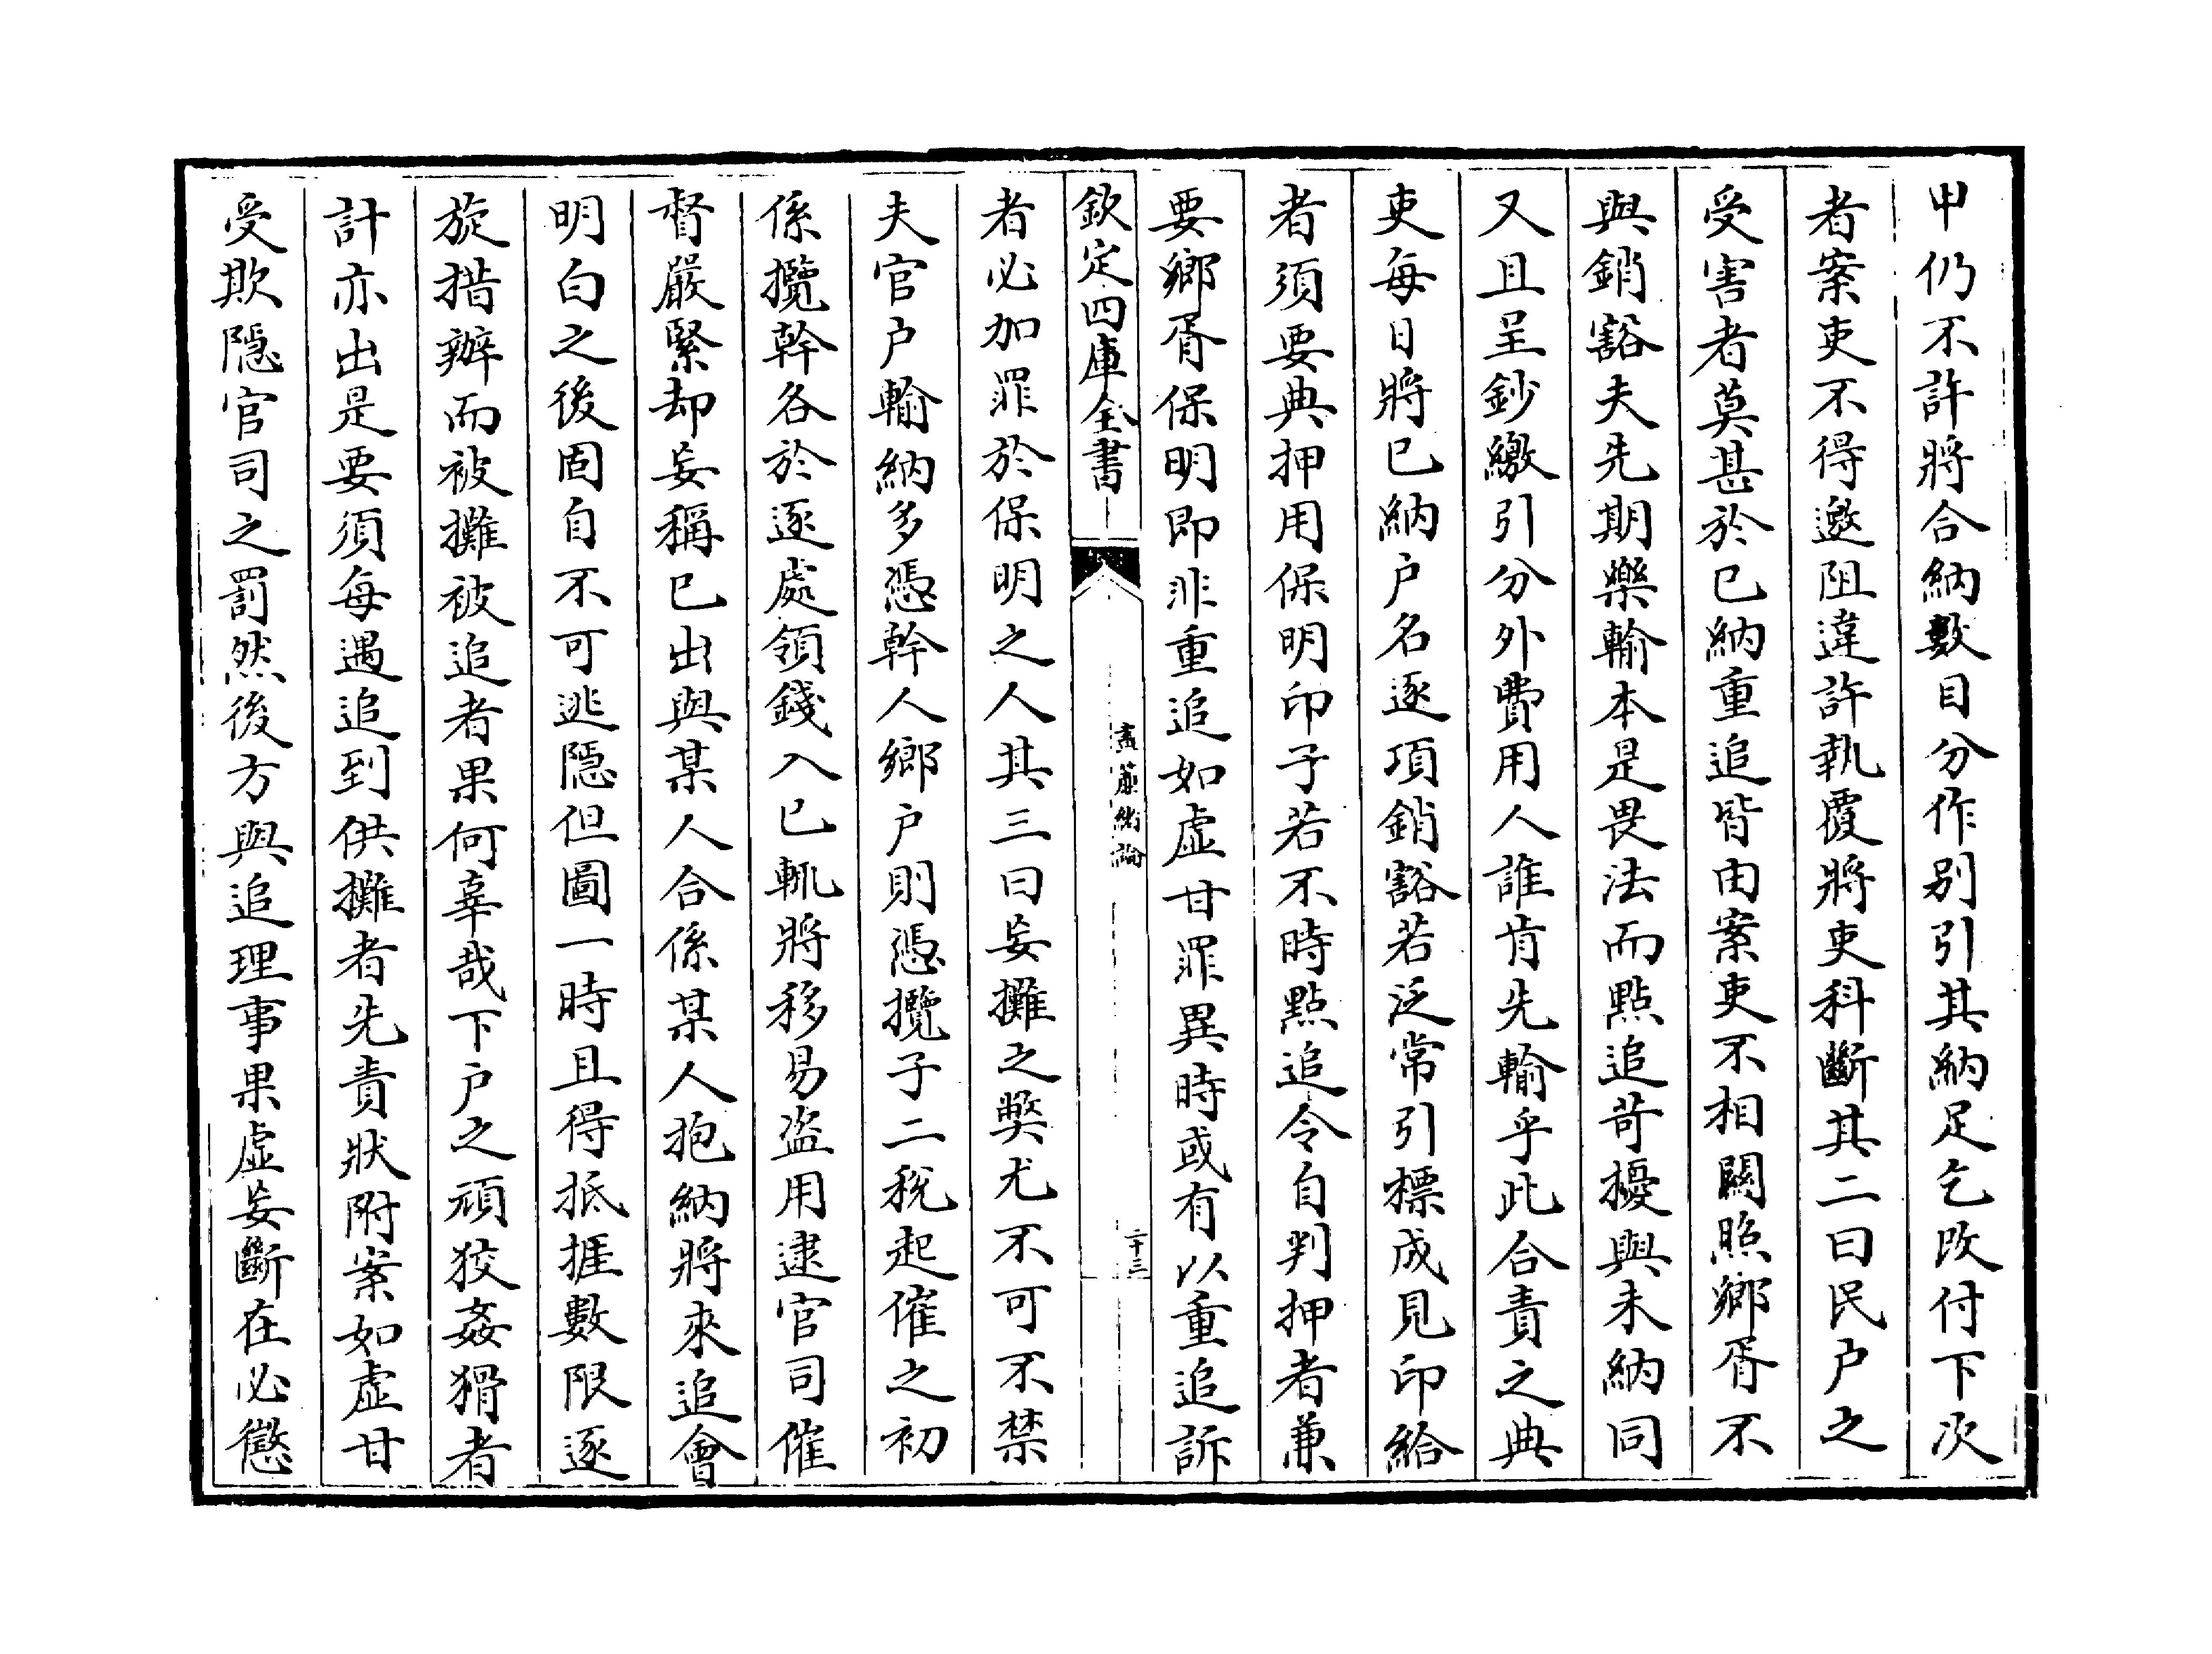 甲仍不許將合納數目分作別引其納足乞改付下次
者案吏不得邀阻違許執覆將吏科斷其二曰民户之
受害者莫甚於已納重追皆由案吏不相關照鄉胥不
與銷豁夫先期樂輸本是畏法而點追苛擾與未納同
又且呈鈔繳引分外費用人誰肯先輸乎此合責之典
吏每日將已納户名逐項銷豁若泛常引標成見印給
者須要典押用保明印子若不時點追令自判押者兼
要鄉胥保明即非重追如虚甘罪異時或有以重追訴
欽定四庫全書
晝簾緒論
二十三
者必加罪於保明之人其三曰妄攤之弊尤不可不禁
夫官户輸納多憑幹人鄉户則憑攬子二稅起催之初
係攬幹各於逐處領錢入已輒將移易盗用逮官司催
督嚴緊却妄稱已出與某人合係某人抱納將來追會
明白之後固自不可逃隱但圖一時且得抵捱數限逐
旋措辦而被攤被追者果何辜哉下户之頑狡姦猾者
計亦出是要須每遇追到供攤者先責狀附案如虚甘
受欺隱官司之罰然後方與追理事果虚妄斷在必懲